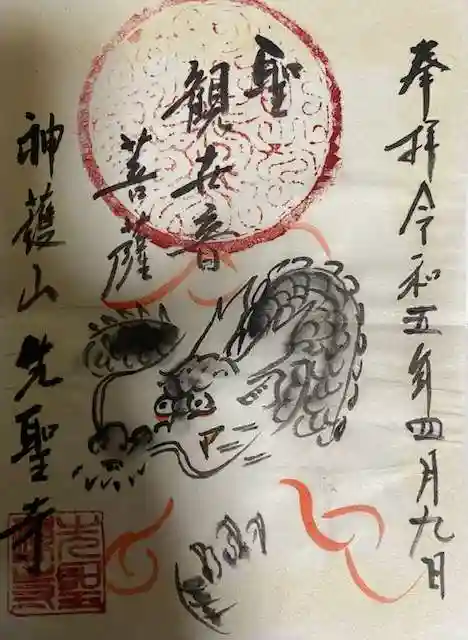 奉拝 令和五年四月九日
聖
観世音
菩薩
神護山 先聖寺